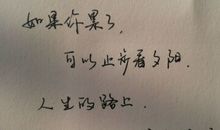 如果你累了,
可以止步看夕阳.
人生的路上.